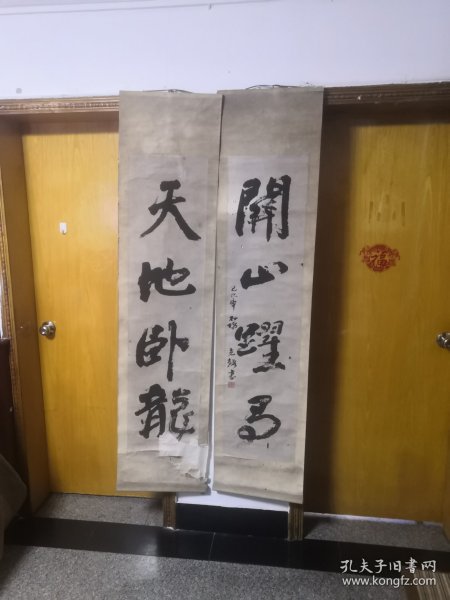 關山躍馬
天地卧龍
福
孔夫子旧书网
www.kongfz.com